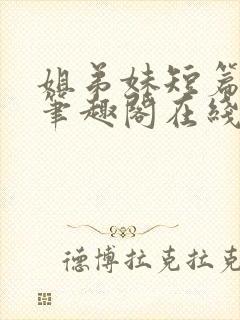 姐弟妹短篇
笔趣阁在线
德博拉克拉克